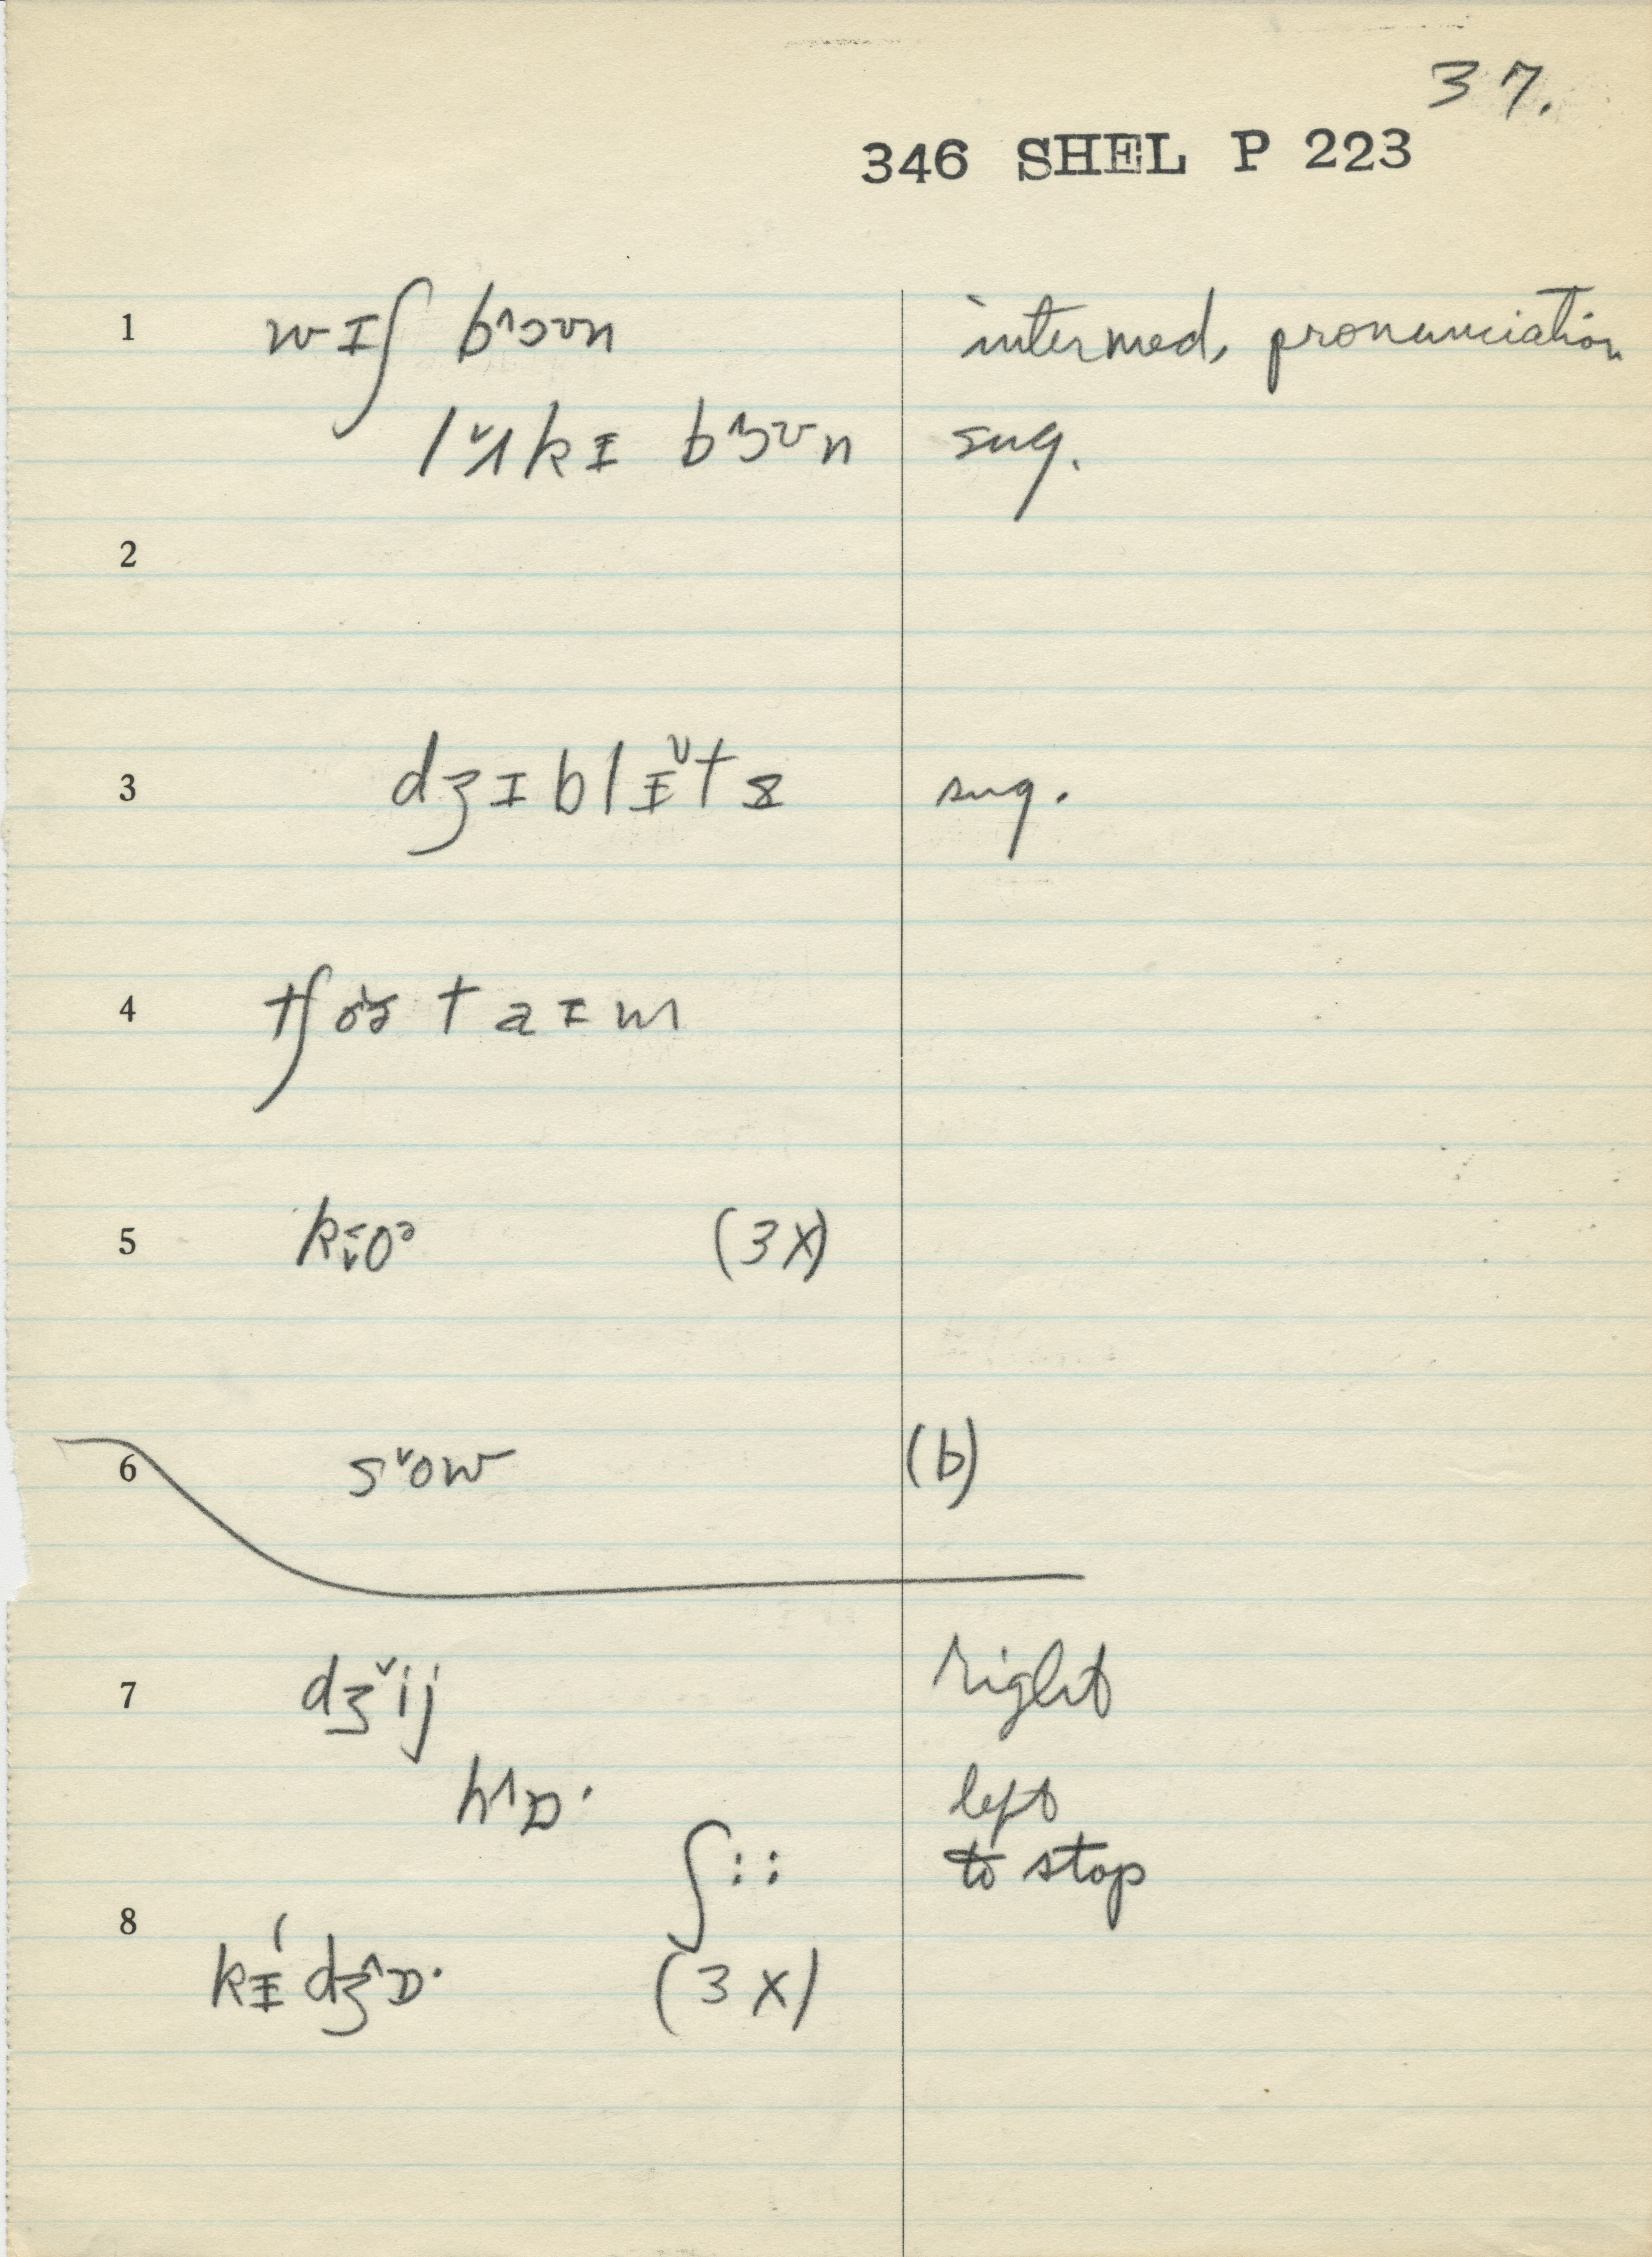 37.
346 SHEL P 223
1 wɪʃ b^ɔʊn intermed. pronunciation
lˇʌkɪ b^ɜʊn sug.
2
3 dʒɪblɪˇts sug.
4 taɪm
5 (3X)
6 sˇow (b)
7 dʒˇij right
h^ɒ· left
ʃ:: to stop
8
kɨ dʒ^ɒ· (3X)